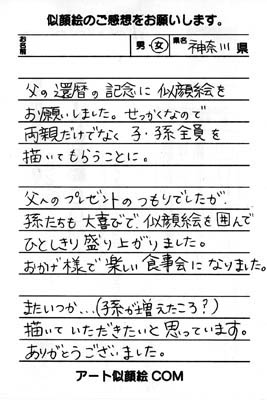 似顔絵のご感想をお願いします。
お名前 男・女 県名 神奈川 県
父の還暦の記念に似顔絵を
お願いしました。せっかくなので
両親だけでなく子・孫全員を
描いてもらうことに。
父へのプレゼントのつもりでしたが、
孫たちも大喜びで、似顔絵を囲んで
ひとしきり盛り上がりました。
おかげ様で楽しい食事会になりました。
またいつか…(孫が増えたころ?)
描いていただきたいと思っています。
ありがとうございました。
アート似顔絵COM